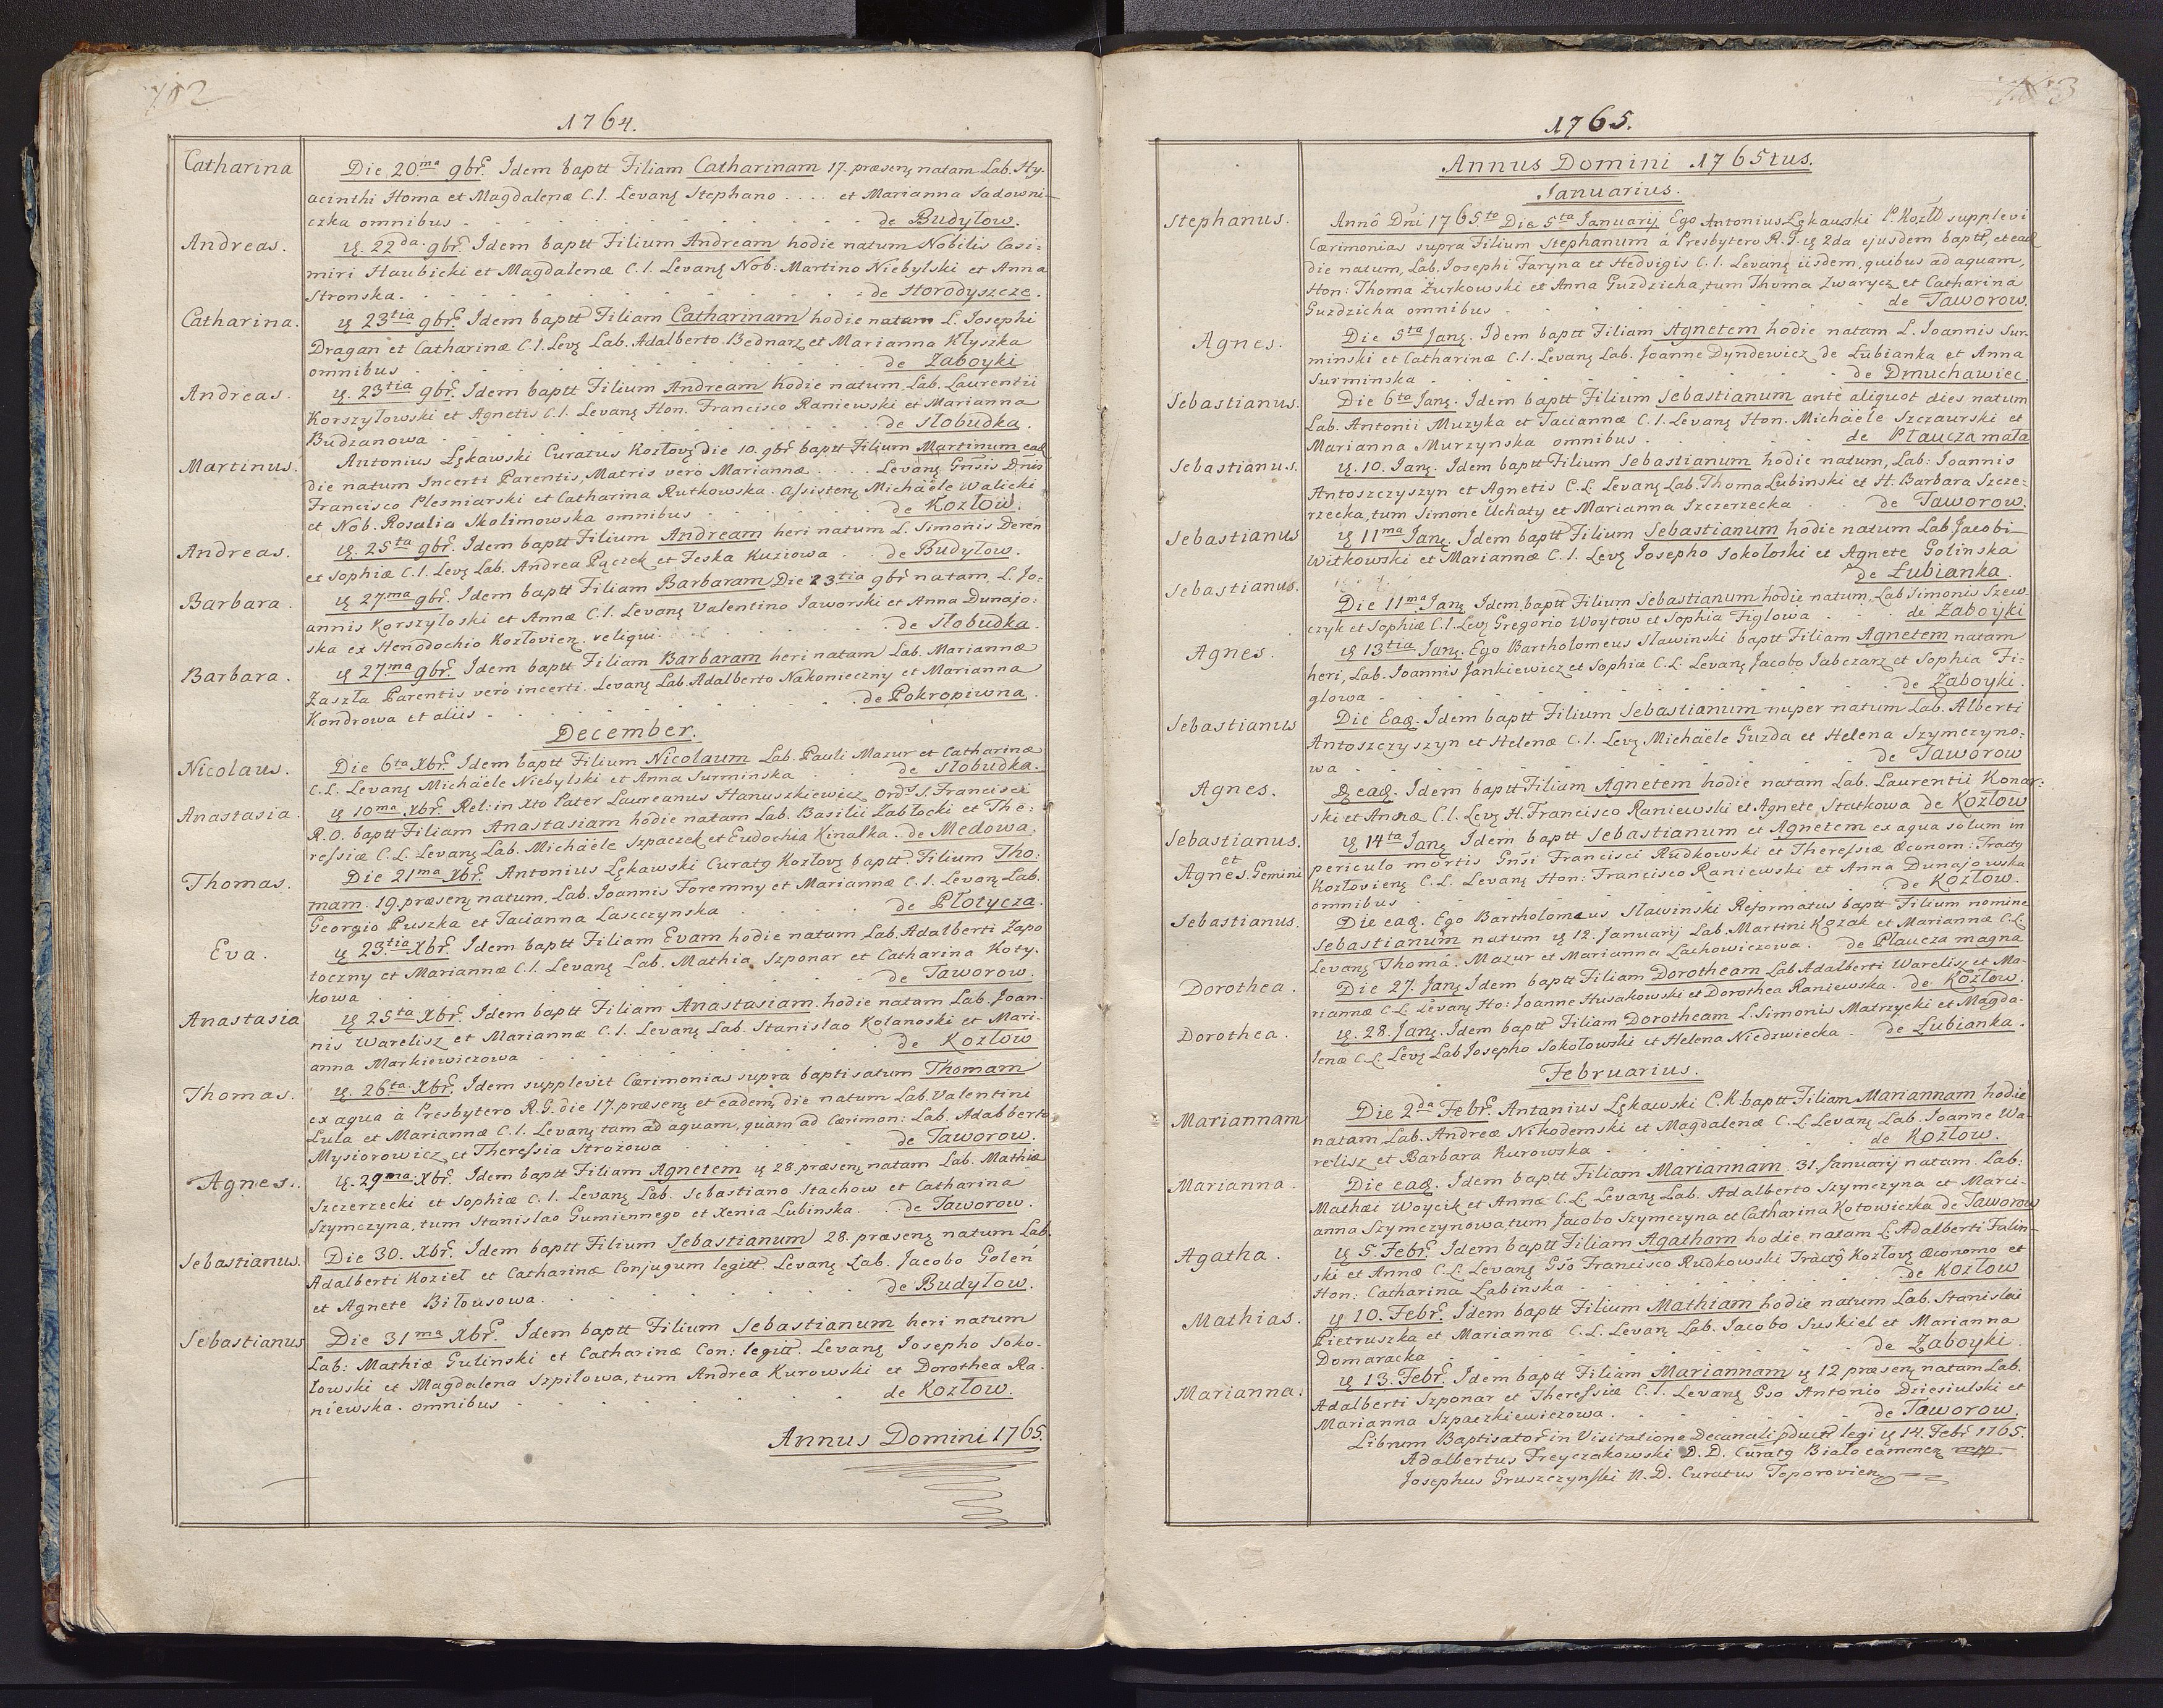 702
1764.
Catharina
Die 20.ma 9br̃. Idem baptt Filiam Catharinam 17. præsenꝫ natam Lab. Hy-
acinthi Homa et Magdalenæ C. l. Levanꝫ Stephano . . . . et Marianna Sadowni-
czka omnibus . . . de Budyłow.
Andreas.
ꝗ. 22da. 9br̃. Idem baptt Filium Andream hodie natum Nobilis Casi-
miri Haubicki et Magdalenæ C. l. Levanꝫ Nob: Martino Niebylski et Anna
Stronska. . . . de Horodyszcze.
Catharina.
ꝗ 23tia 9br̃. Idem baptt Filiam Catharinam hodie natam L. Josephi
Dragan et Catharinæ C. l. Levꝫ Lab. Adalberto Bednarz et Marianna Klyszka
omnibus . . . de Zaboyki
Andreas.
ꝗ. 23tia 9br̃. Idem baptt Filium Andream hodie natum Lab. Laurentii
Korszyłowski et Agnetis C. l. Levanꝫ Hon. Francisco Raniewski et Marianna
Budzanowa . . . de Słobudka.
Martinus.
Antonius Łękawski Curatus Kozlovꝫ die 10. 9br̃ baptt Filium Martinum ead
die natum Incerti Parentis, Matris vero Mariannæ . . . . Levanꝫ Gnsis Dnis
Francisco Plesniarski et Catharina Rutkowska. Assistenꝫ Michaële Walicki
et Nob. Rosalia Skolimowska omnibus . . . de Kozłow.
Andreas.
ꝗ. 25ta 9br̃. Idem baptt Filium Andream heri natum L. Simonis Deren
et Sophiæ C. l. Levꝫ Lab. Andrea Pączek et Feska Kuziowa . . de Budylow.
Barbara.
ꝗ 27ma 9br̃. Idem baptt Filiam Barbaram Die 23tia 9br̃ natam L. Jo-
annis Korszyłoski et Annæ C. l. Levanꝫ Valentino Jaworski et Anna Dunajo-
ska ex Henodochio Kozlovien. reliqui . . . de Słobudka.
Barbara.
ꝗ 27ma 9br̃. Idem baptt Filiam Barbaram heri natam Lab. Mariannæ
Zaszła Parentis vero incerti. Levanꝫ Lab. Adalberto Nakonieczny et Marianna
Kondrowa et aliis . . . de Pokropiwna.
December.
Nicolaus.
Die 6ta Xbr̃. Idem baptt Filium Nicolaum Lab. Pauli Mazur et Catharinæ
C. L. Levanꝫ Michaële Niebylski et Anna Surminska . . de Słobudka.
Anastasia.
ꝗ 10ma Xbr̃. Rel: in Xto Pater Laureanus Hanuszkiewicz Ords S. Francisci
R. O. baptt Filiam Anastasiam hodie natam Lab. Basilii Zabłocki et The-
ressiæ C. L. Levanꝫ Lab. Michaële Szpaczek et Eudochia Kinalka. . de Medowa.
Thomas.
Die 21ma Xbr̃. Antonius Łękawski Curatꝫ Kozlovꝫ baptt. Filium Tho-
mam. 19. præsenꝫ natum, Lab. Joannis Foremny et Mariannæ C. l. Levanꝫ Lab.
Georgio Puszka et Tacianna Laszczynska . . . de Płotycza.
Eva.
ꝗ 23.tia Xbr̃. Idem baptt Filiam Evam hodie natam Lab. Adalberti Zapo
toczny et Mariannæ C. l. Levanꝫ Lab. Mathia Szponar et Catharina Koty-
kowa . . . de Taworow.
Anastasia
ꝗ 25ta Xbr̃. Idem baptt Filiam Anastasiam. hodie natam Lab. Joan-
nis Warelisz et Mariannæ C. l. Levanꝫ Lab. Stanislao Kolanoski et Mari-
anna Markiewiczowa . . . de Kozłow
Thomas.
ꝗ. 26ta Xbr̃. Idem supplevit Cærimonias supra baptisatum Thomam
ex aqua à Presbytero R. G. die 17. præsenꝫ et eadem die natum Lab. Valentini
Lula et Mariannæ C. l. Levanꝫ tam ad aquam, quam ad Cærimon: Lab. Adalberto
Mysiorowicz et Theressia Strozowa . . . de Taworow.
Agnes.
ꝗ. 29ma Xbr̃. Idem baptt Filiam Agnetem ꝗ 28. præsenꝫ natam Lab. Mathiæ
Szczerzecki et Sophiæ C. l. Levanꝫ Lab. Sebastiano Stachow et Catharina
Szymczyna, tum Stanislao Gumiennego et Xenia Lubinska. . de Taworow.
Sebastianus.
Die 30. Xbr̃. Idem baptt Filium Sebastianum 28. præsenꝫ natum Lab.
Adalberti Kozieł et Catharinæ Conjugum legitt. Levanꝫ Lab. Jacobo Goleń
et Agnete Biłousowa. . . . de Budyłow.
Sebastianus
Die 31ma Xbr̃. Idem baptt Filium Sebastianum heri natum
Lab: Mathiæ Gulinski et Catharinæ Con: legitt. Levanꝫ Josepho Soko-
łowski et Magdalena Szpiłowa, tum Andrea Kurowski et Dorothea Ra-
niewska. omnibus . . . de Kozłow.
Annus Domini 1765.
1765.
Annus Domini 1765tus.
Januarius.
Stephanus.
Annô Dni 1765to Die 5ta Januarij Ego Antonius Łękawski C. Kozło supplevi
Cærimonias supra Filium Stephanum á Presbytero R. G. ꝗ 2da ejusdem baptt, et ead
die natum, Lab. Josephi Faryna et Hedvigis C. l. Levanꝫ iisdem, quibus ad aquam,
Hon: Thoma Żurkowski et Anna Guzdzicha, tum Thoma Zwarycz et Catharina
Guzdzicha omnibus . . . de Taworow.
Agnes.
Die 5ta Janꝫ. Idem baptt Filiam Agnetem hodie natam L. Joannis Sur-
minski et Catharinæ C. l. Levanꝫ Lab. Joanne Dyndewicz de Lubianka et Anna
Surminska . . . de Dmuchawiec.
Sebastianus.
Die 6ta Janꝫ. Idem baptt Filium Sebastianum ante aliquot dies natum
Lab. Antonii Muzyka et Taciannæ C. l. Levanꝫ Hon. Michaële Szczaurski et
Marianna Murzynska omnibus . . . de Płaucza mała
Sebastianus.
ꝗ. 10. Janꝫ. Idem baptt Filium Sebastianum hodie natum, Lab: Joannis
Antoszczyszyn et Agnetis C. L. Levanꝫ Lab. Thoma Lubinski et H. Barbara Szcze-
rzecka, tum Simone Uchaty et Marianna Szczerzecka . . de Taworow.
Sebastianus
ꝗ 11ma Janꝫ. Idem baptt Filium Sebastianum hodie natum Lab Jacobi
Witkowski et Mariannæ C. l. Levꝫ Josepho Sokoloski et Agnete Golinska
de Łubianka.
Sebastianus.
Die 11ma Janꝫ Idem baptt Filium Sebastianum hodie natum, Lab Simonis Szew-
czyk et Sophiæ C. l. Levꝫ Gregorio Woytow et Sophia Figlowa . . de Zaboyki
Agnes.
ꝗ 13tia Janꝫ. Ego Bartholomeus Sławinski baptt Filiam Agnetem natam
heri, Lab. Joannis Jankiewicz et Sophiæ C. L. Levanꝫ Jacobo Jabczarz et Sophia Fi-
glowa . . . de Zaboyki.
Sebastianus
Die Eaꝗ. Idem baptt Filium Sebastianum nuper natum Lab. Alberti
Antoszczyszyn et Helenæ C. l. Levꝫ Michaële Guzda et Helena Szymczyno-
wa . . . de Taworow
Agnes.
ꝗ eaꝗ. Idem baptt Filiam Agnetem hodie natam Lab. Laurentii Konar-
ski et Annæ C. l. Levꝫ H. Francisco Raniewski et Agnete Statkowa de Kozłow
Sebastianus.
et
Agnes. Gemini
ꝗ 14ta Janꝫ Idem baptt Sebastianum et Agnetem ex aqua solum in
periculo mortis Gnsi Francisci Rudkowski et Theressiæ Œconom: Tractꝫ
Kozlovienꝫ C. L. Levanꝫ Hon: Francisco Raniewski et Anna Dunajowska
omnibus . . . de Kozłow.
Sebastianus.
Die eaꝗ. Ego Bartholomæus Sławinski Reformatus baptt Filium nomine
Sebastianum natum ꝗ 12. Januarij Lab. Martini Kozak et Mariannæ C. L.
Levanꝫ Thomâ. Mazur et Marianna Lachowiczowa. de Płaucza magna
Dorothea.
Die 27. Janꝫ Idem baptt Filiam Dorotheam Lab Adalberti Warelisz et Ma-
riannæ C. L. Levanꝫ Ho: Joanne Husakowski et Dorothea Raniewska. de Kozłow.
Dorothea.
ꝗ. 28. Janꝫ. Idem baptt Filiam Dorotheam L. Simonis Matrzycki et Magda-
lenæ C. L. Levꝫ Lab Josepho Sokołowski et Helena Niedzwiecka . de Łubianka.
Februarius.
Mariannam
Die 2da Febr̃. Antonius Łękawski C. K. baptt Filiam Mariannam hodie
natam Lab. Andreæ Nikodemski et Magdalenæ C. L. Levanꝫ Lab. Joanne Wa-
relisz et Barbara Kurowska . . . de Kozłow.
Marianna.
Die eaꝗ. Idem baptt Filiam Mariannam. 31. Januarij natam. Lab:
Mathæi Woycik et Annæ C. L. Levanꝫ Lab. Adalberto Szymczyna et Mari-
anna Szymczynowa tum Jacobo Szymczyna et Catharina Kotowiczka de Taworow
Agatha.
ꝗ 5. Febr̃. Idem baptt Filiam Agatham hodie natam L. Adalberti Falin-
ski et Annæ C. L. Levanꝫ Gso Francisco Rudkowski Tractꝫ Kozlovꝫ Œconomo et
Hon: Catharina Labinska . . . de Kozłow
Mathias.
ꝗ 10. Febr̃. Idem baptt Filium Mathiam hodie natum Lab. Stanislai
Pietruszka et Mariannæ C. L. Levanꝫ Lab. Jacobo Suskiel et Marianna
Domaracka . . . de Zaboyki.
Marianna.
ꝗ 13. Febr̃. Idem baptt Filiam Mariannam ꝗ 12 præsenꝫ natam Lab.
Adalberti Szponar et Theressiæ C. l. Levanꝫ Gso Antonio Dziesiulski et
Marianna Szpaczkiewiczowa. . . . de Taworow.
Librum Baptisator̃ in Visitatione Decanali legi ꝗ 14. Febr̃ 1765.
Adalbertus Freyczakowski D. D. Curatꝫ Białocamenꝫ
Josephus Gruszczynski N. D. Curatus Toporovienꝫ